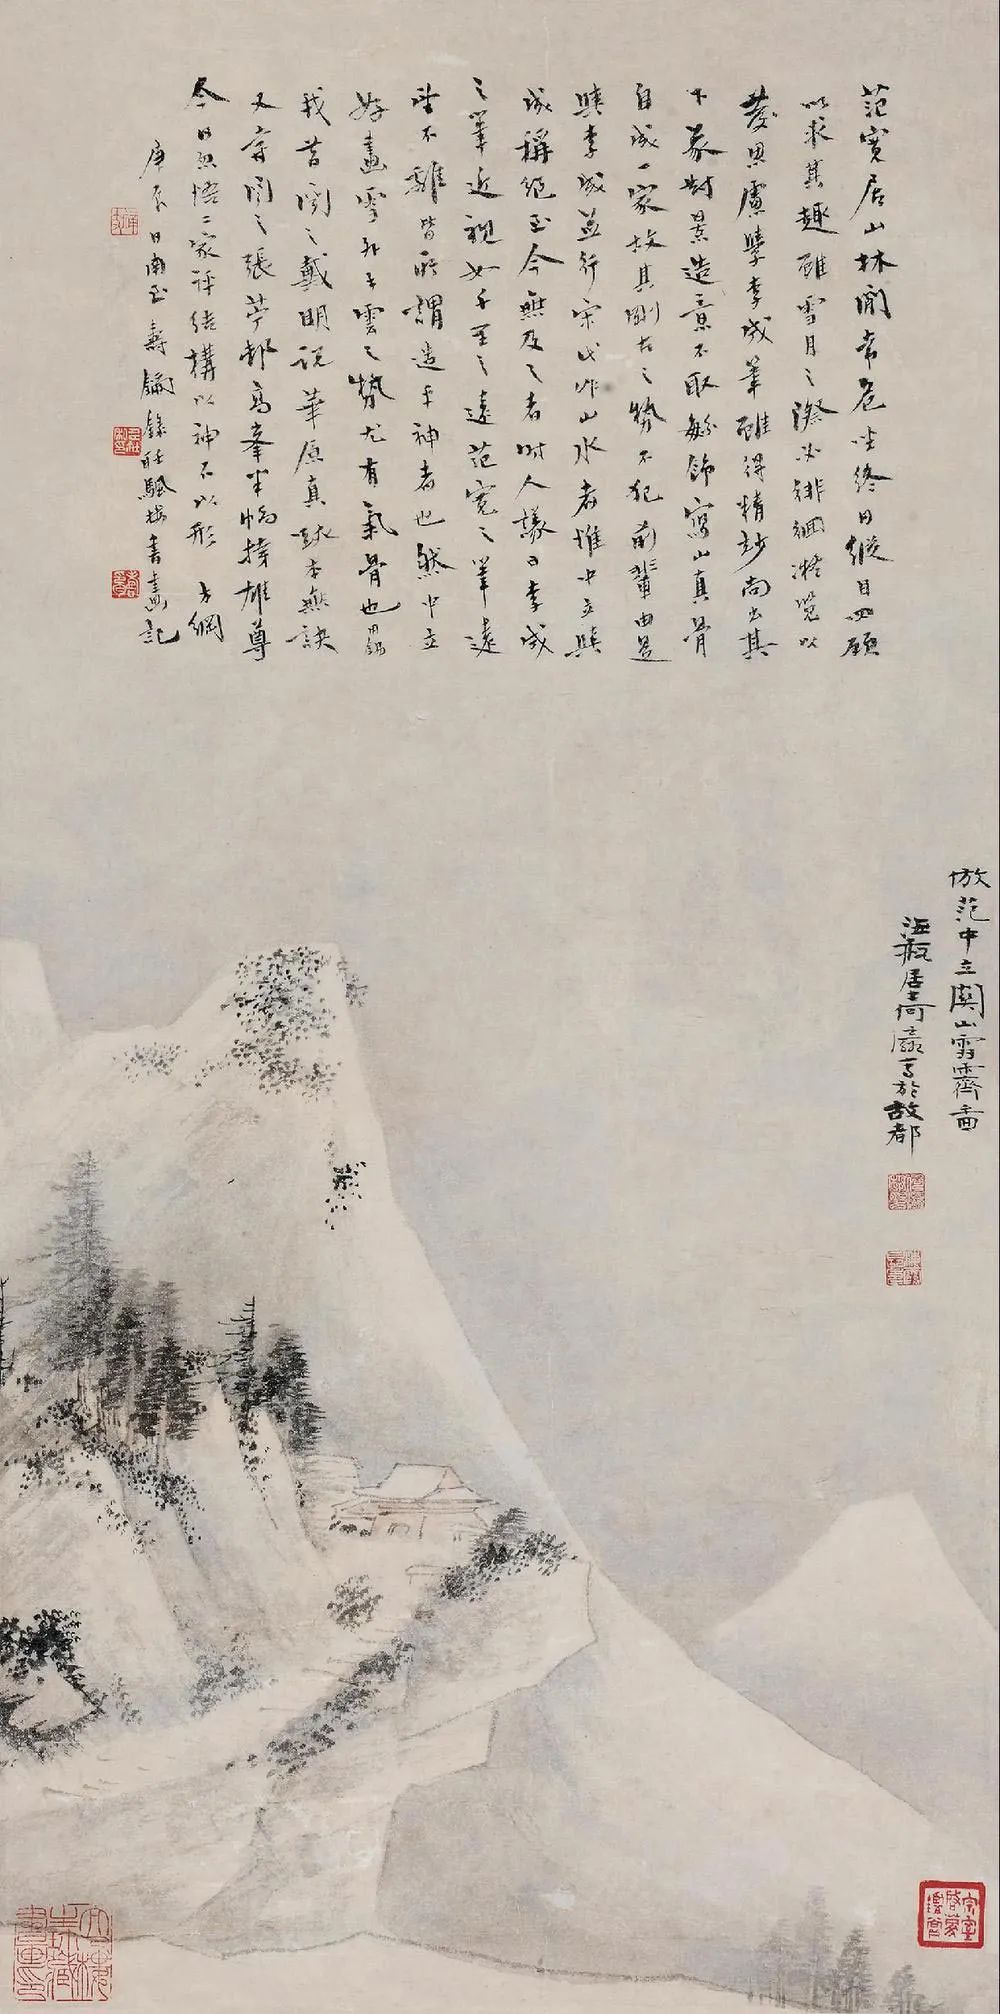 范寬居山林間常危坐終日縱目四顧
以求其趣雖雪月之際必徘徊凝覽以
發思慮學李成筆雖得精妙尚出其
下遂對景造意不取繁飾寫山真骨
自成一家故其剛古之勢不犯前輩由是
與李成並行宋代作山水者惟中立與
成稱絕至今無及之者時人議曰李成
之筆近視如千里之遠范寬之筆遠
望不離皆所謂造乎神者也然中立
好畫雪外其雲之勢尤有氣骨也
我昔聞之戴明說華原真跡本無訣
又嘗聞之張芋邨高峯半幅撐雄尊
今日忽悟二家評結構以神不以形 方綱
庚辰日南至壽鏞錄於飄梅書畫記
倣范中立關山雪霽圖
海瓶居士何瀛寫於故都